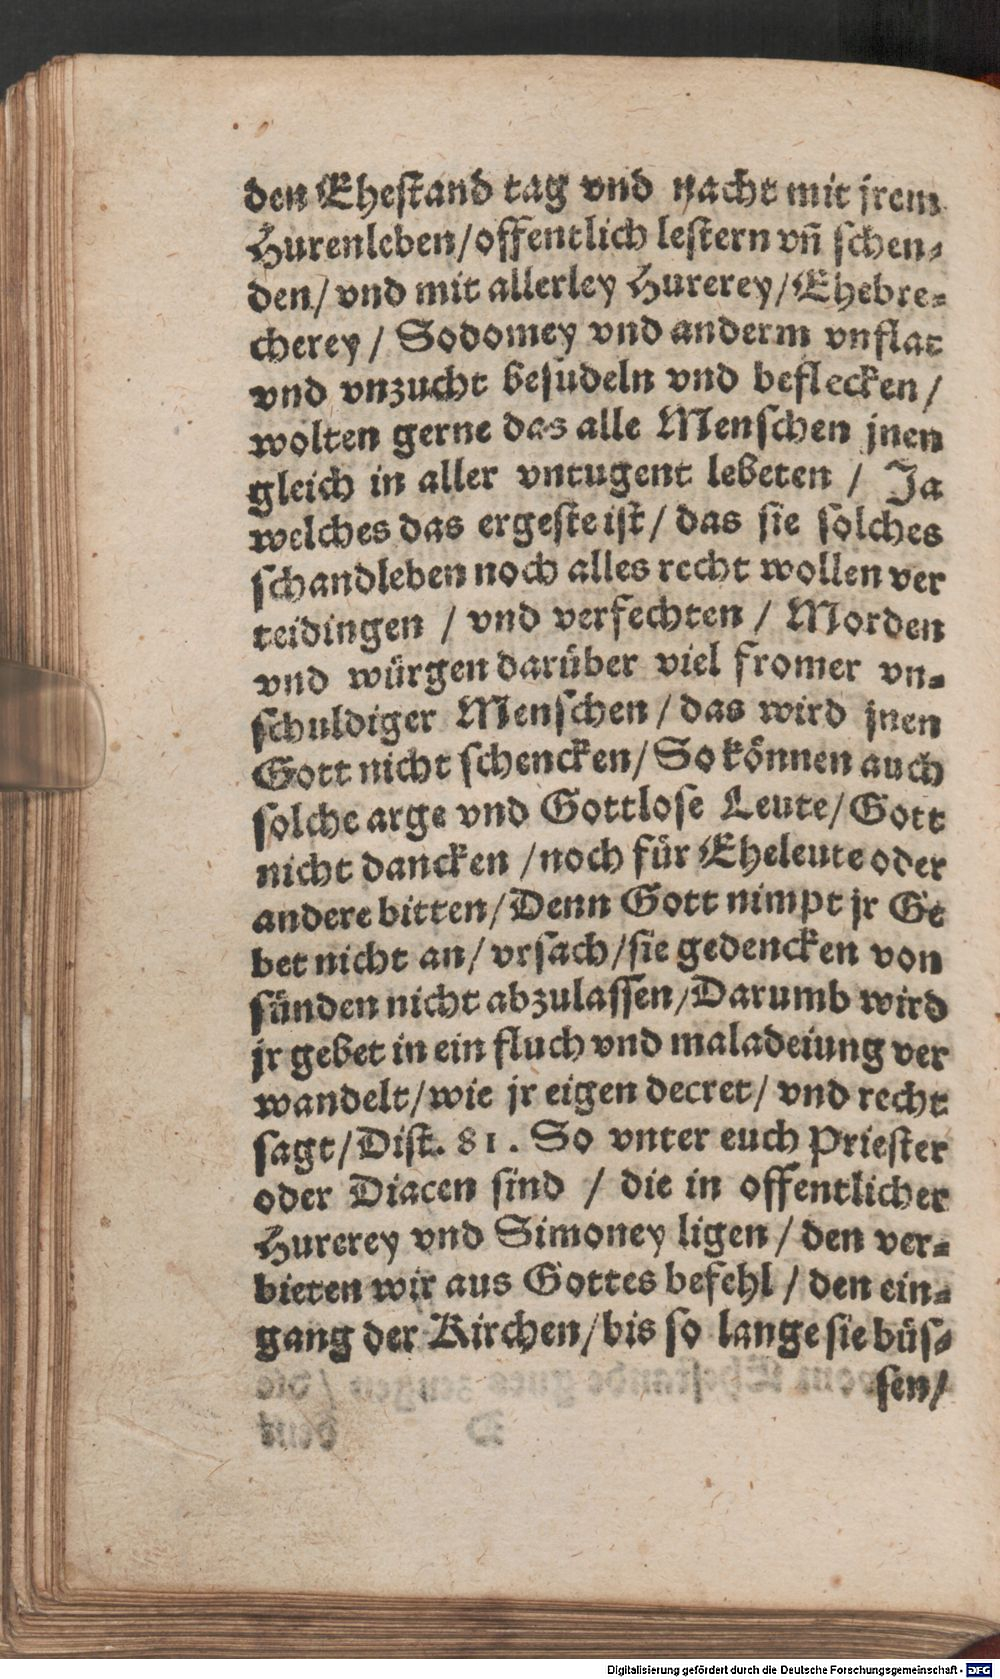 den Ehestand tag vnd nacht mit jrem
Hurenleben/offentlich lestern vñ schen-
den/ vnd mit allerley Hurerey/Ehebre-
cherey / Sodomey vnd anderm vnflat
vnd vnzucht besudeln vnd beflecken /
wolten gerne das alle Menschen jnen
gleich in aller vntugent lebeten / Ja
welches das ergeste ist/ das sie solches
schandleben noch alles recht wollen ver
teidingen / vnd verfechten / Morden
vnd würgen darüber viel fromer vn-
schuldiger Menschen / das wird jnen
Gott nicht schencken/ So können auch
solche arge vnd Gottlose Leute/ Gott
nicht dancken /noch für Eheleute oder
andere bitten/Denn Gott nimpt jr Ge
bet nicht an/ vrsach/sie gedencken von
sünden nicht abzulassen/Darumb wird
jr gebet in ein fluch vnd maladeiung ver
wandelt/wie jr eigen decret/ vnd recht
sagt/Dist. 81. So vnter euch Priester
oder Diacen sind / die in offentlicher
Hurerey vnd Simoney ligen / den ver-
bieten wir aus Gottes befehl / den ein-
gang der Kirchen/bis so lange sie büs-
sen/
Digitalisierung gefördert durch die Deutsche Forschungsgemeinschaft - DFG